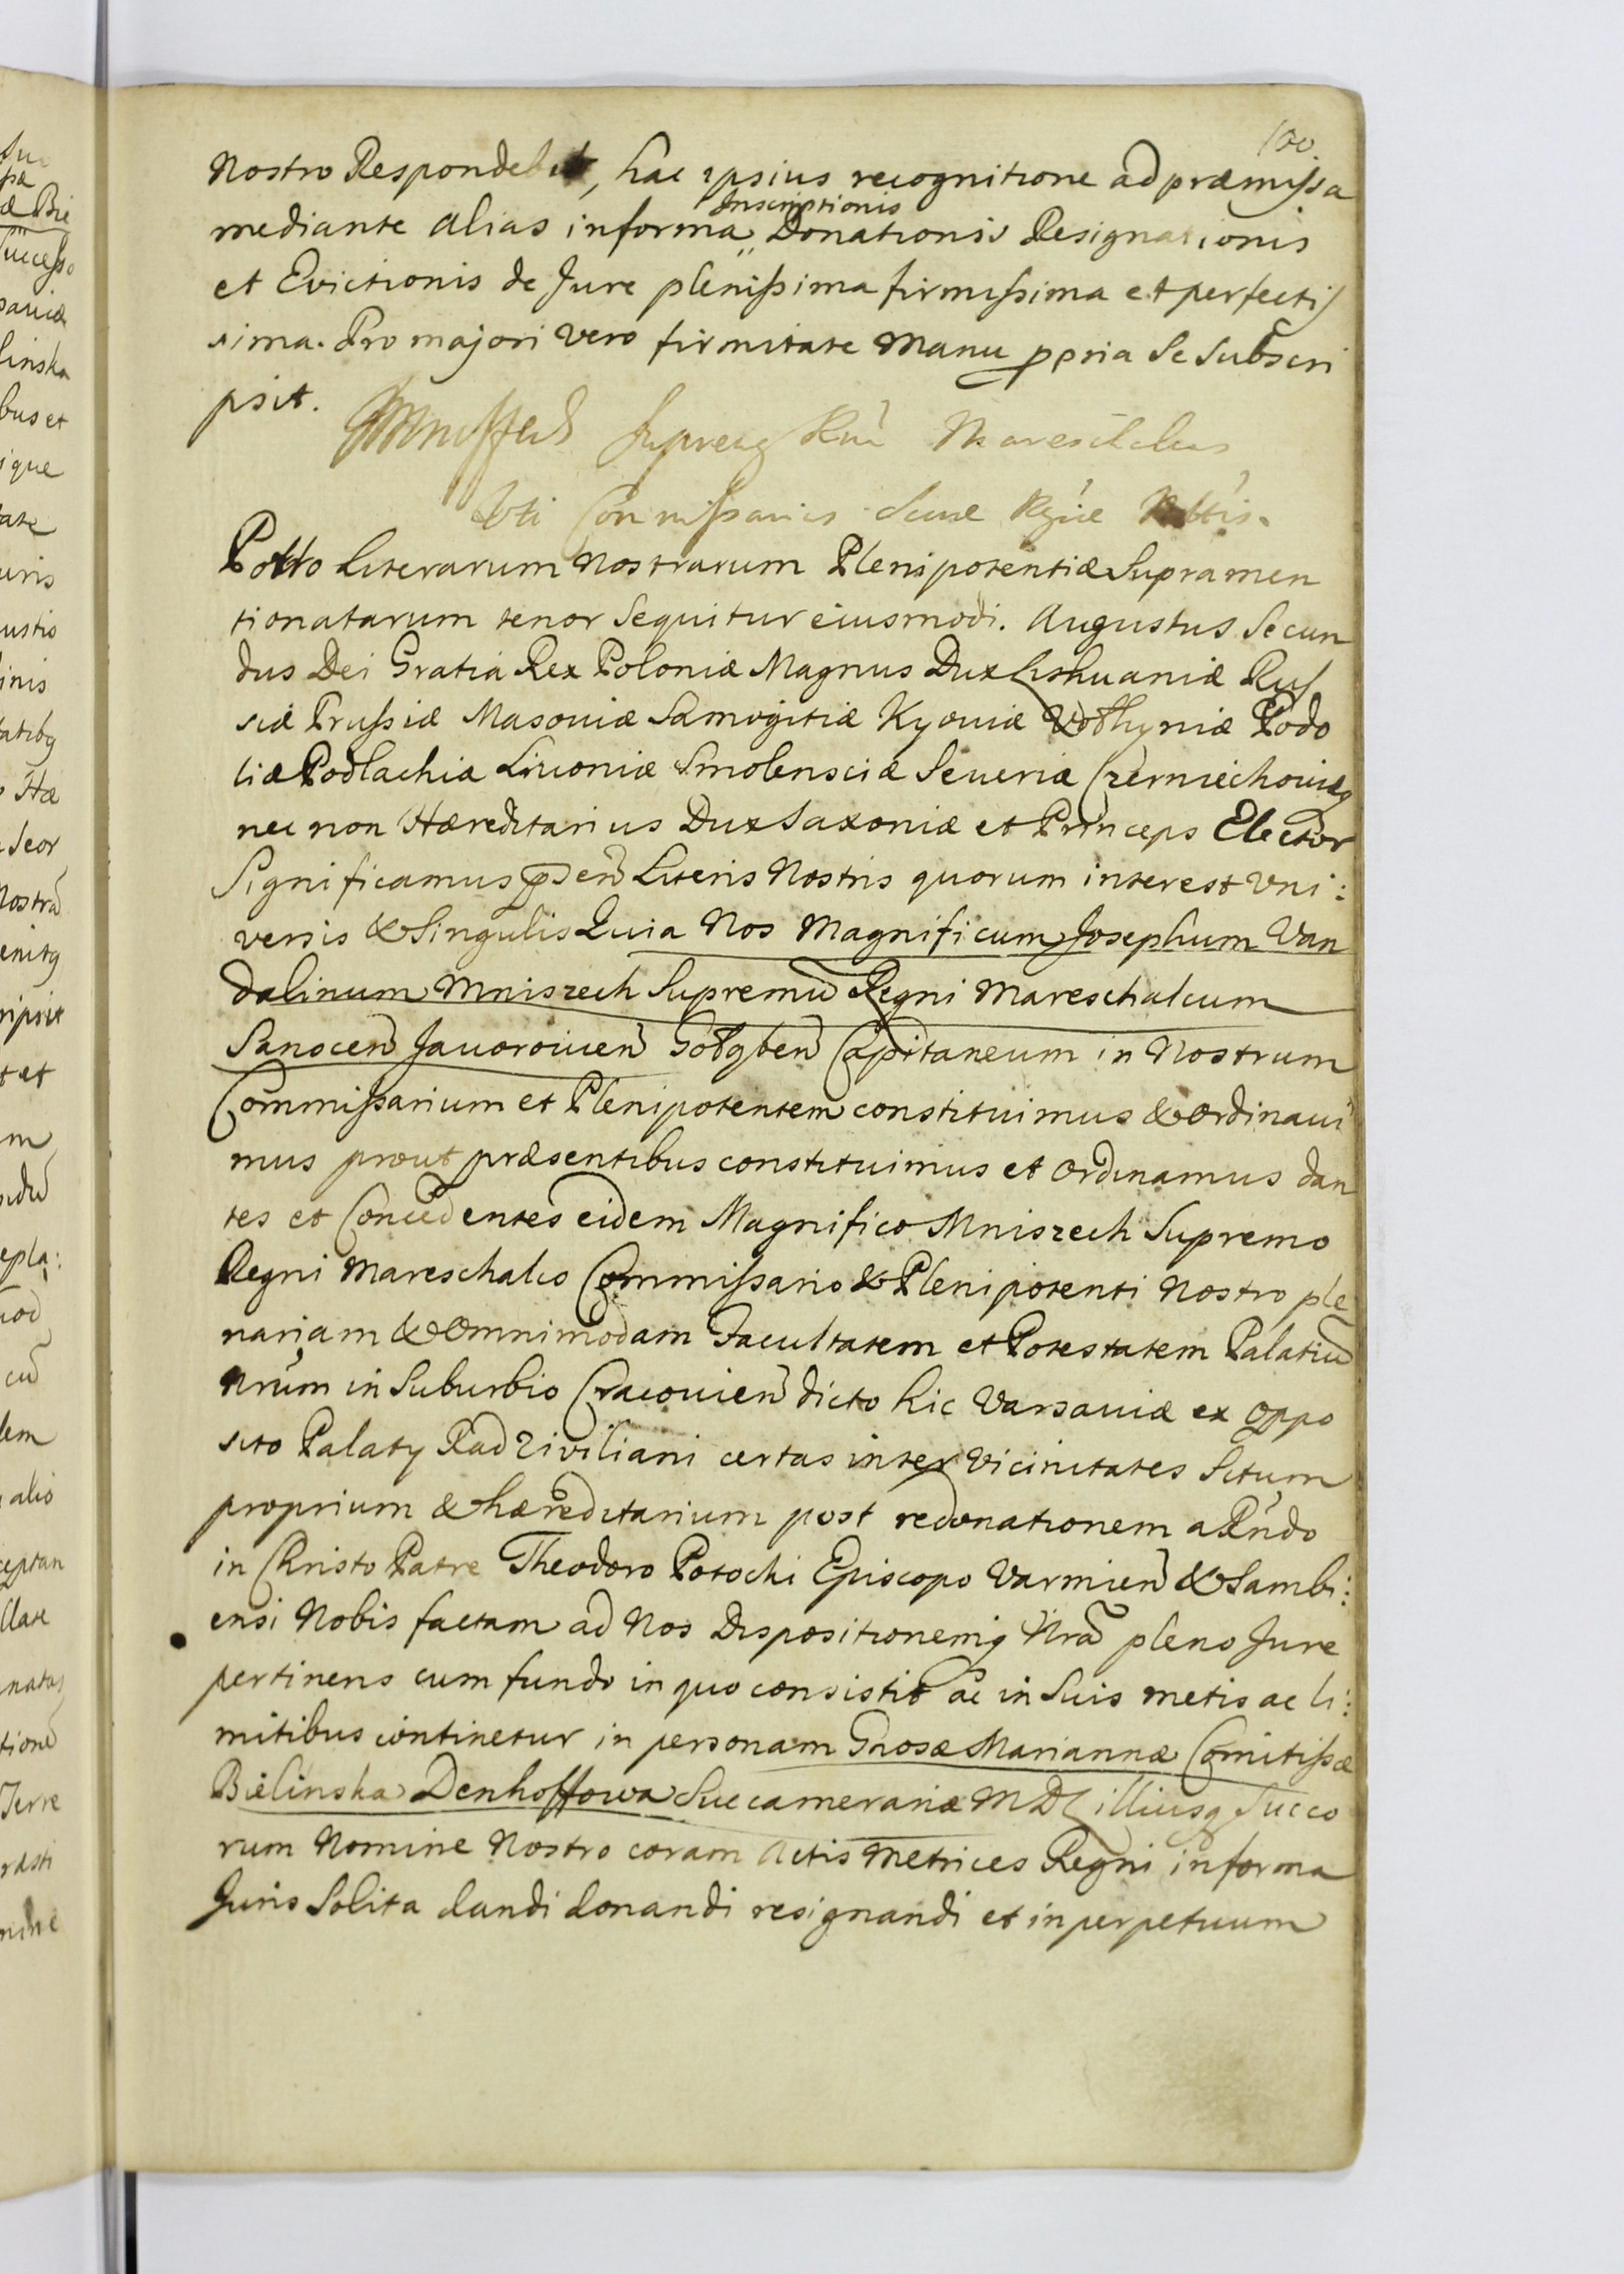 100
Nostro Respondebit, hac ipsius recognitione ad præmissa
Inscriptionis
mediante alias in forma Donationis Resignationis
et Evictionis de Jure plenissima firmissima et perfectis
sima. Pro majori vero firmitate Manu ppria Se Subscri
psit.
Supremg Marescalcus
Uti Commissarius Sacræ Rgiæ Mttis.
Potro Literarum Nostrarum Plenipotentiæ Supramen
tionatarum tenor Sequitur eiusmodi. Augustus Secun
dus Dei Gratia Rex Poloniæ Magnus Dux Lithuaniæ Rus
siæ Prussiæ Masoviæ Samogitiæ Kyoviæ Volhyniæ Podo
liæ Podlachiæ Livoniæ Smolensciæ Seueriæ Czerniechouiæq
nec non Hæreditarius Dux Saxoniæ et Princeps Elector
Significamus psen Literis Nostris quorum interest Uni:
versis & Singulis Quia Nos Magnificum Josephum Van
dalinum Mniszech Supremu Regni Mareschalcum
Sanocen Javorouien Golgben Capitaneum in Nostrum
Commissarium et Plenipotentem constituimus & ordinaui
mus prout præsentibus constituimus et ordinamus dan
tes et Concedentes eidem Magnifico Mniszech Supremo
Regni Mareschalco Commissario & Plenipotenti Nostro ple
nariam & Omnimodam Facultatem et Potestatem Palatiu
Nrum in Suburbio Cracouien dicto hic Varsaviæ ex oppo
sito Palaty Radziviliani certas inter Vicinitates Situm
proprium & hæreditarium post redonationem a Rndo
in Christo Patre Theodoro Potochi Episcopo Varmien & Sambi:
ensi Nobis factam ad Nos Dispositionemq Nra pleno Jure
pertinens cum fundo in quo consistit ac in Suis metis ac li:
mitibus continetur in personam Gnosæ Mariannæ Comitissæ
Bielinska Denhoffowa Succamerariæ MDL illiusq Succo
rum Nomine Nostro coram Actis Metrices Regni in forma
Juris Solita dandi donandi resignandi et in perpetuum